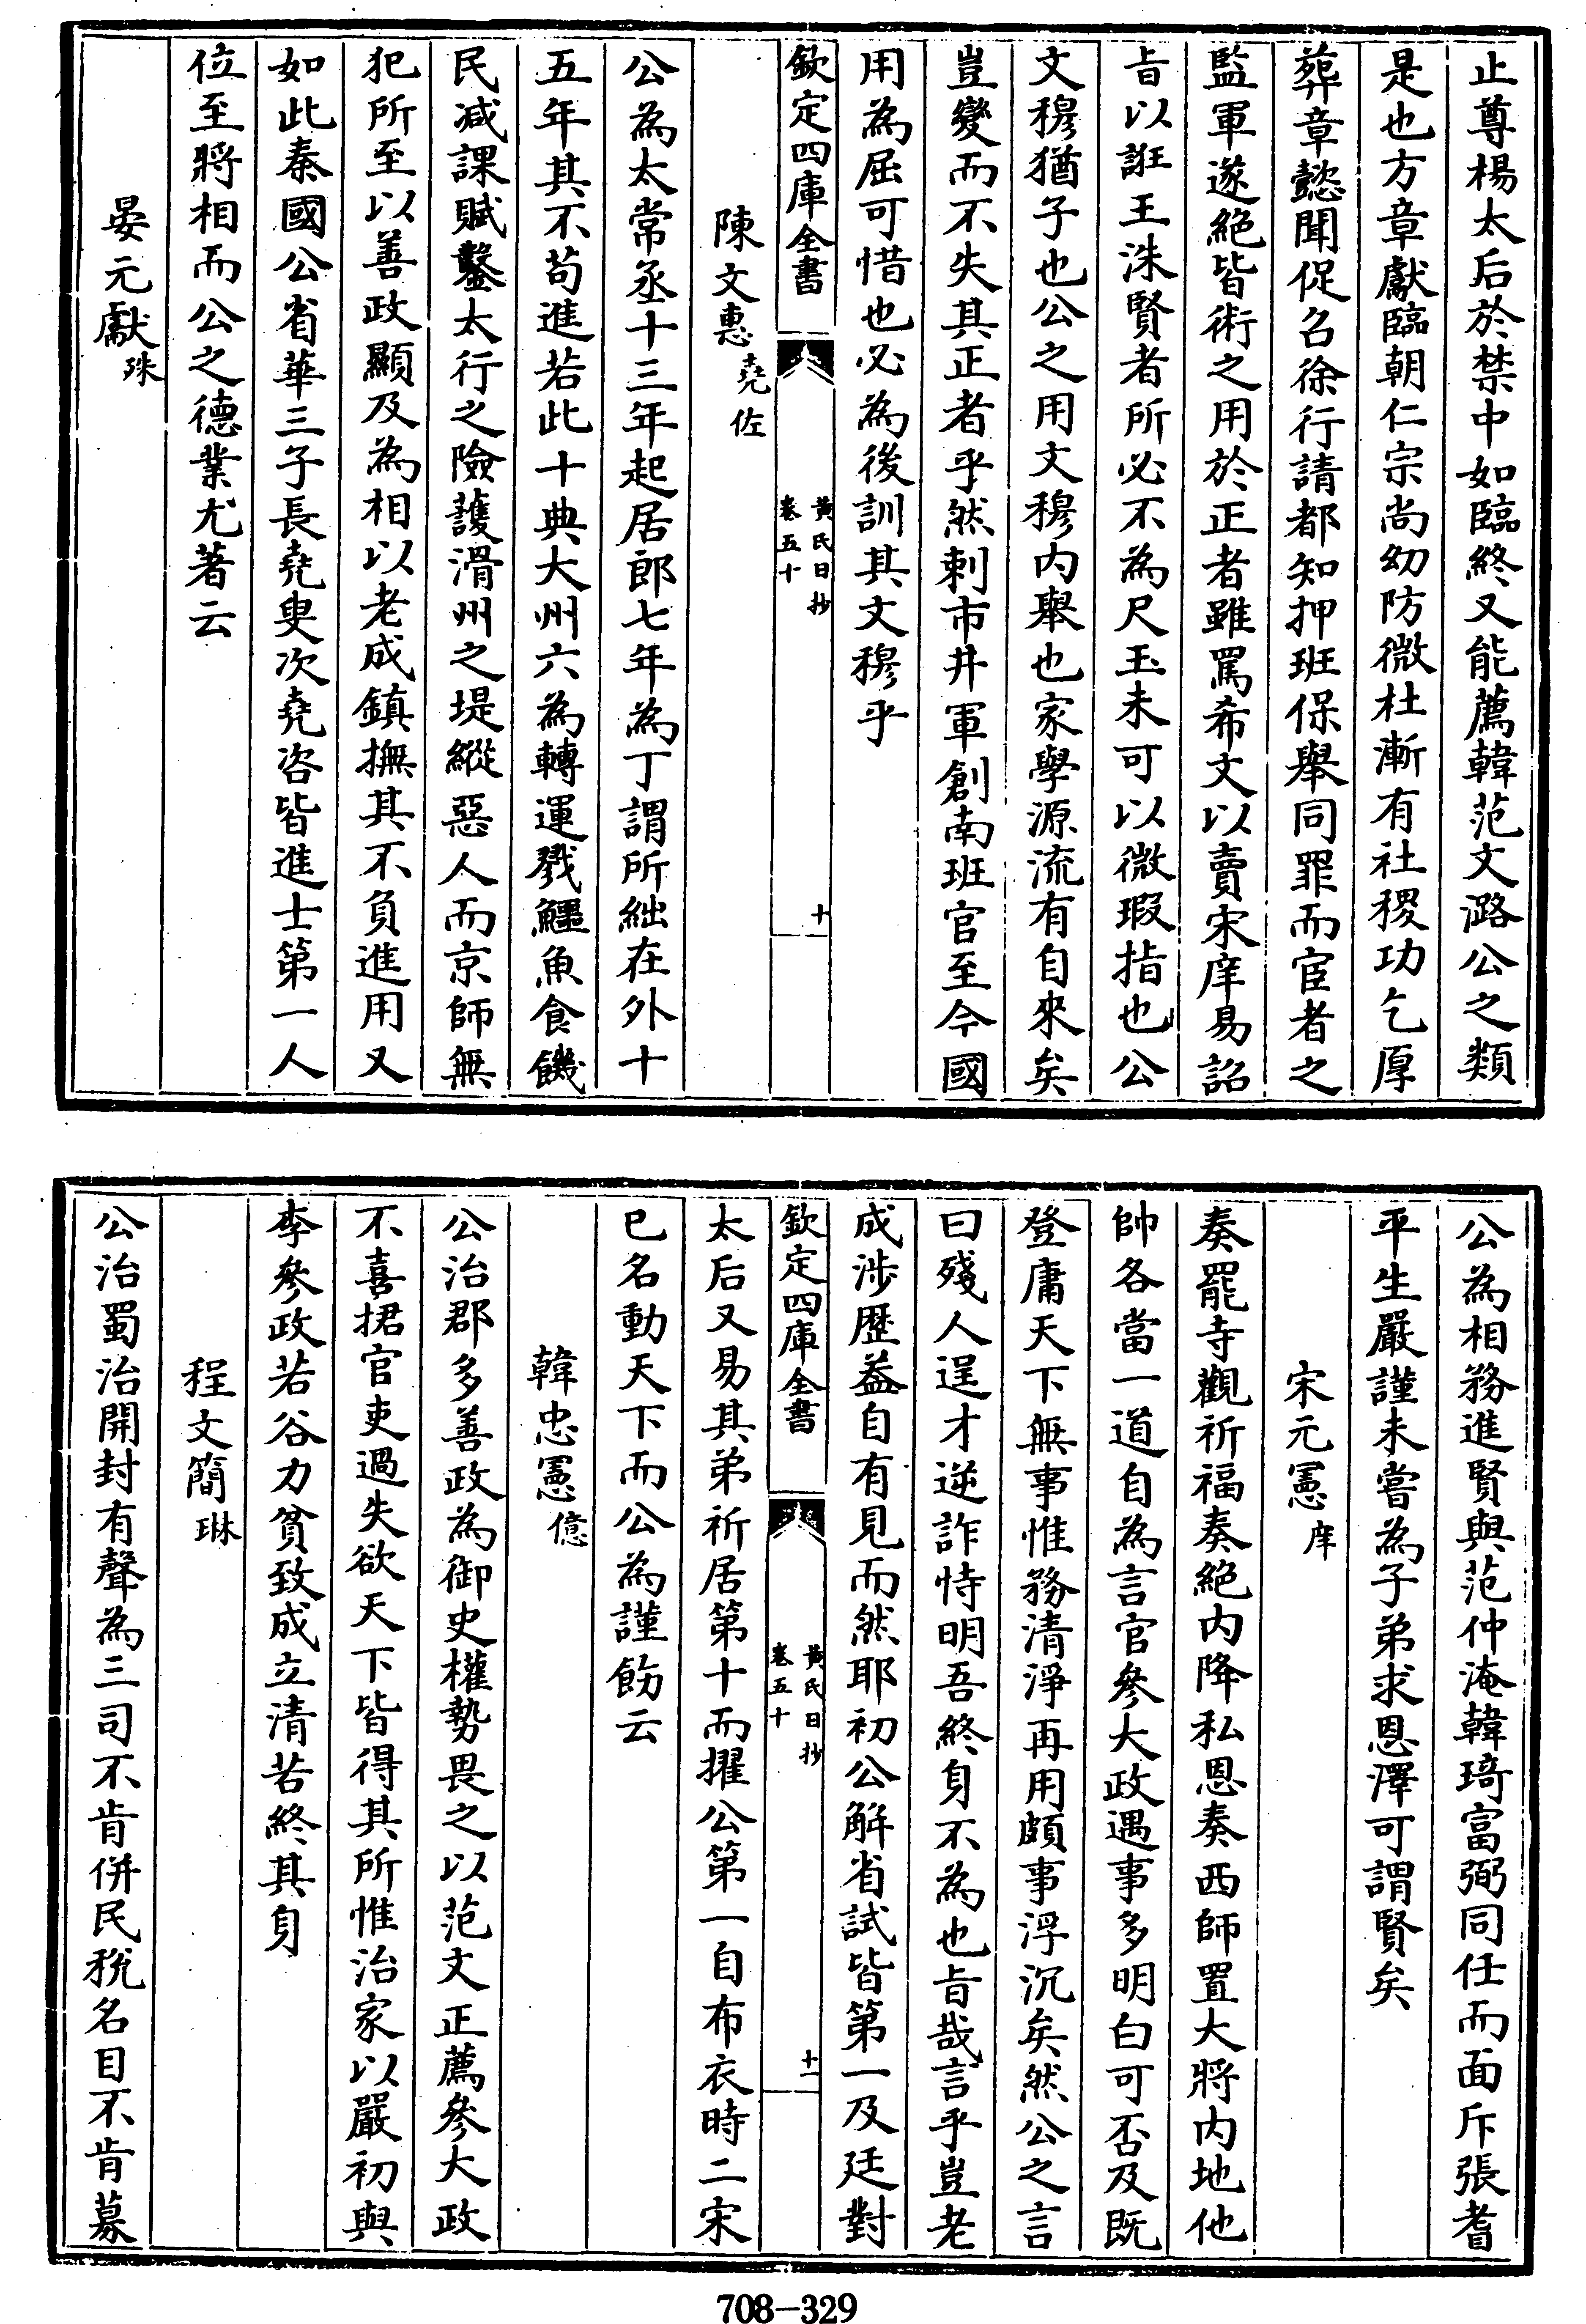 止尊楊太后於禁中如臨終又能薦韓范文潞公之類
是也方章獻臨朝仁宗尚幼防微杜漸有社稷功乞厚
葬章懿聞促召徐行請都知押班保舉同罪而宦者之
監軍遂絕皆術之用於正者雖罵希文以賣宋庠易詔
㫖以誑王洙賢者所必不為尺玉未可以微瑕指也公
文穆猶子也公之用文穆内舉也家學源流有自來矣
豈變而不失其正者乎然剌市井軍創南班官至今國
用為屈可惜也必為後訓其文穆乎
欽定四庫全書
黃氏日抄
卷五十
十
陳文惠堯佐
公為太常丞十三年起居郎七年為丁謂所絀在外十
五年其不苟進若此十典大州六為轉運戮鱷魚食饑
民減課賦鑿太行之險護滑州之堤縱惡人而京師無
犯所至以善政顯及為相以老成鎮撫其不負進用又
如此秦國公省華三子長堯叟次堯咨皆進士第一人
位至將相而公之德業尤著云
晏元獻殊
公為相務進賢與范仲淹韓琦富弼同任而面斥張耆
平生嚴謹未嘗為子弟求恩澤可謂賢矣
宋元憲庠
奏罷寺觀祈福奏絕内降私恩奏西師置大將内地他
帥各當一道自為言官參大政遇事多明白可否及既
登庸天下無事惟務清淨再用頗事浮沉矣然公之言
曰殘人逞才逆詐恃明吾終身不為也㫖哉言乎豈老
成涉歴益自有見而然耶初公解省試皆第一及廷對
欽定四庫全書
黃氏日抄
卷五十
十一
太后又易其弟祈居第十而擢公第一自布衣時二宋
已名動天下而公為謹飭云
韓忠憲億
公治郡多善政為御史權勢畏之以范文正薦參大政
不喜捃官吏過失欲天下皆得其所惟治家以嚴初與
李參政若谷力貧致成立清苦終其身
程文簡琳
公治蜀治開封有聲為三司不肯併民稅名目不肯募
708-329